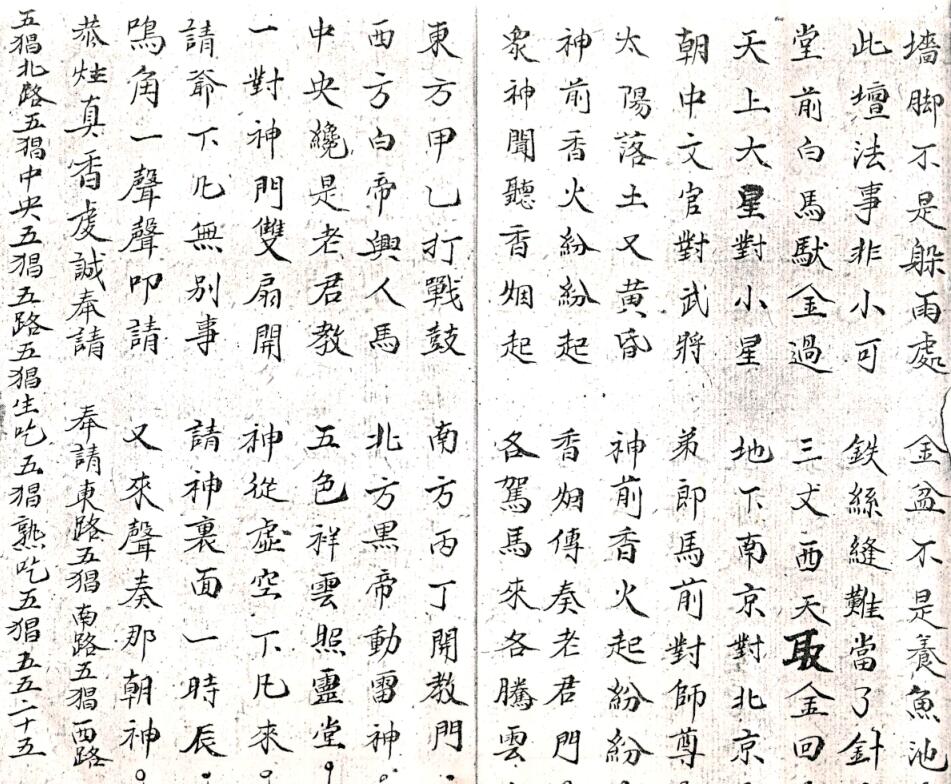 墻脚不是躲雨處 金盆不是養魚池
此壇法事非小可 鉄絲縫難當了針
堂前白馬馱金過 三丈西天取金回
天上大星對小星 地下南京對北京
朝中文官對武將 弟郎馬前對師尊
太陽落土又黄昏 神前香火起紛紛
神前香火紛紛起 香烟傳奏老君門
衆神聞聽香烟起 各駕馬來各騰雲
東方甲乙打戰鼓 南方丙丁開教門
西方白帝興人馬 北方黒帝動雷神
中央纔是老君教 五色祥雲照靈堂
一對神門雙扇開 神從虛空下凡來
請爺下凡無別事 請神裏面一時辰
鳴角一聲聲叩請 又來聲奏那朝神
恭炷真香虔誠奉請 奉請東路五猖南路五猖西路
五猖北路五猖中央五猖五路五猖生吃五猖熟吃五猖五五二十五